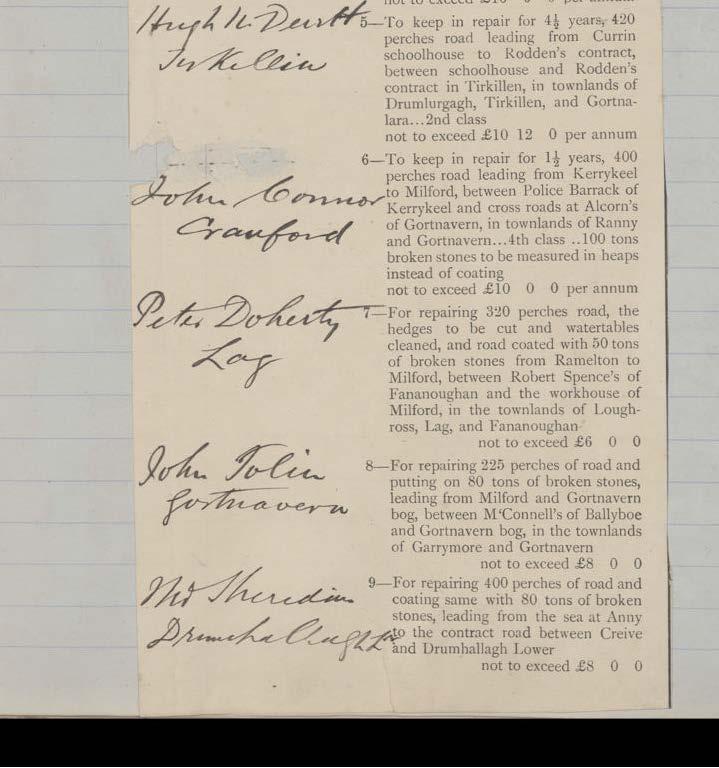 not to exceed £10 0 0 per annum
Hugh McDevitt
Tirkillin
5—To keep in repair for 4½ years, 420
perches road leading from Currin
schoolhouse to Rodden's contract,
between schoolhouse and Rodden's
contract in Tirkillen, in townlands of
Drumlurgagh, Tirkillen, and Gortna-
lara...2nd class
not to exceed £10 12 0 per annum
John Connor
Cranford
6—To keep in repair for 1½ years, 400
perches road leading from Kerrykeel
to Milford, between Police Barrack of
Kerrykeel and cross roads at Alcorn's
of Gortnavern, in townlands of Ranny
and Gortnavern...4th class ..100 tons
broken stones to be measured in heaps
instead of coating
not to exceed £10 0 0 per annum
Peter Doherty
Lag
7—For repairing 320 perches road, the
hedges to be cut and watertables
cleaned, and road coated with 50 tons
of broken stones from Ramelton to
Milford, between Robert Spence's of
Fananoughan and the workhouse of
Milford, in the townlands of Lough-
ross, Lag, and Fananoughan
not to exceed £6 0 0
John Tolin
Gortnavern
8—For repairing 225 perches of road and
putting on 80 tons of broken stones,
leading from Milford and Gortnavern
bog, between M'Connell's of Ballyboe
and Gortnavern bog, in the townlands
of Garrymore and Gortnavern
not to exceed £8 0 0
Sheridan
9—For repairing 400 perches of road and
coating same with 80 tons of broken
stones, leading from the sea at Anny
to the contract road between Creive
and Drumhallagh Lower
not to exceed £8 0 0